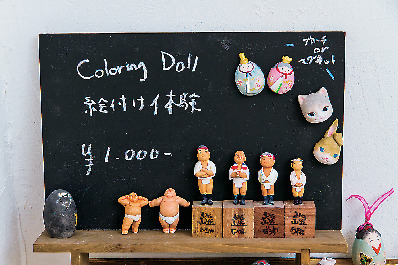 Coloring Doll
絵付け体験
¥1,000-
ブローチ
or
マグネット